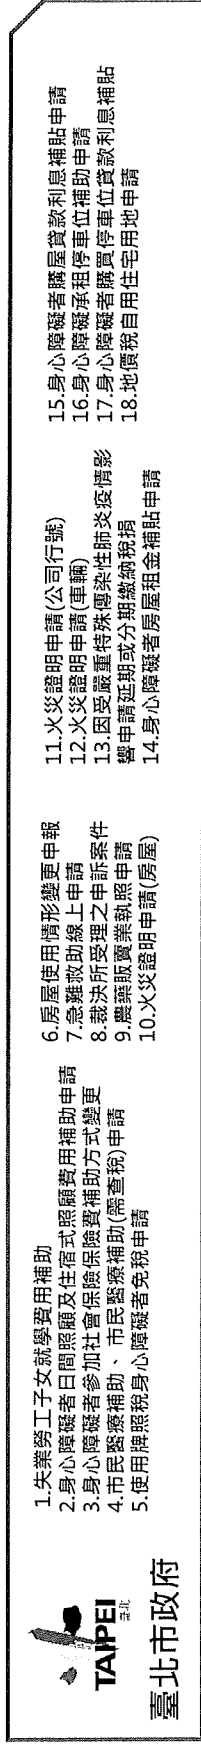 TAIPEI
臺北
臺北市政府
1.失業勞工子女就學費用補助
2.身心障礙者日間照顧及住宿式照顧費用補助申請
3.身心障礙者參加社會保險保險費補助方式變更
4.市民醫療補助、市民醫療補助(需查稅)申請
5.使用牌照稅身心障礙者免稅申請
6.房屋使用情形變更申報
7.急難救助線上申請
8.裁決所受理之申訴案件
9.農藥販賣業執照申請
10.火災證明申請(房屋)
11.火災證明申請(公司行號)
12.火災證明申請(車輛)
13.因受嚴重特殊傳染性肺炎疫情影
響申請延期或分期繳納稅捐
14.身心障礙者房屋租金補貼申請
15.身心障礙者購屋貸款利息補貼申請
16.身心障礙承租停車位補助申請
17.身心障礙者購買停車位貸款利息補貼
18.地價稅自用住宅用地申請